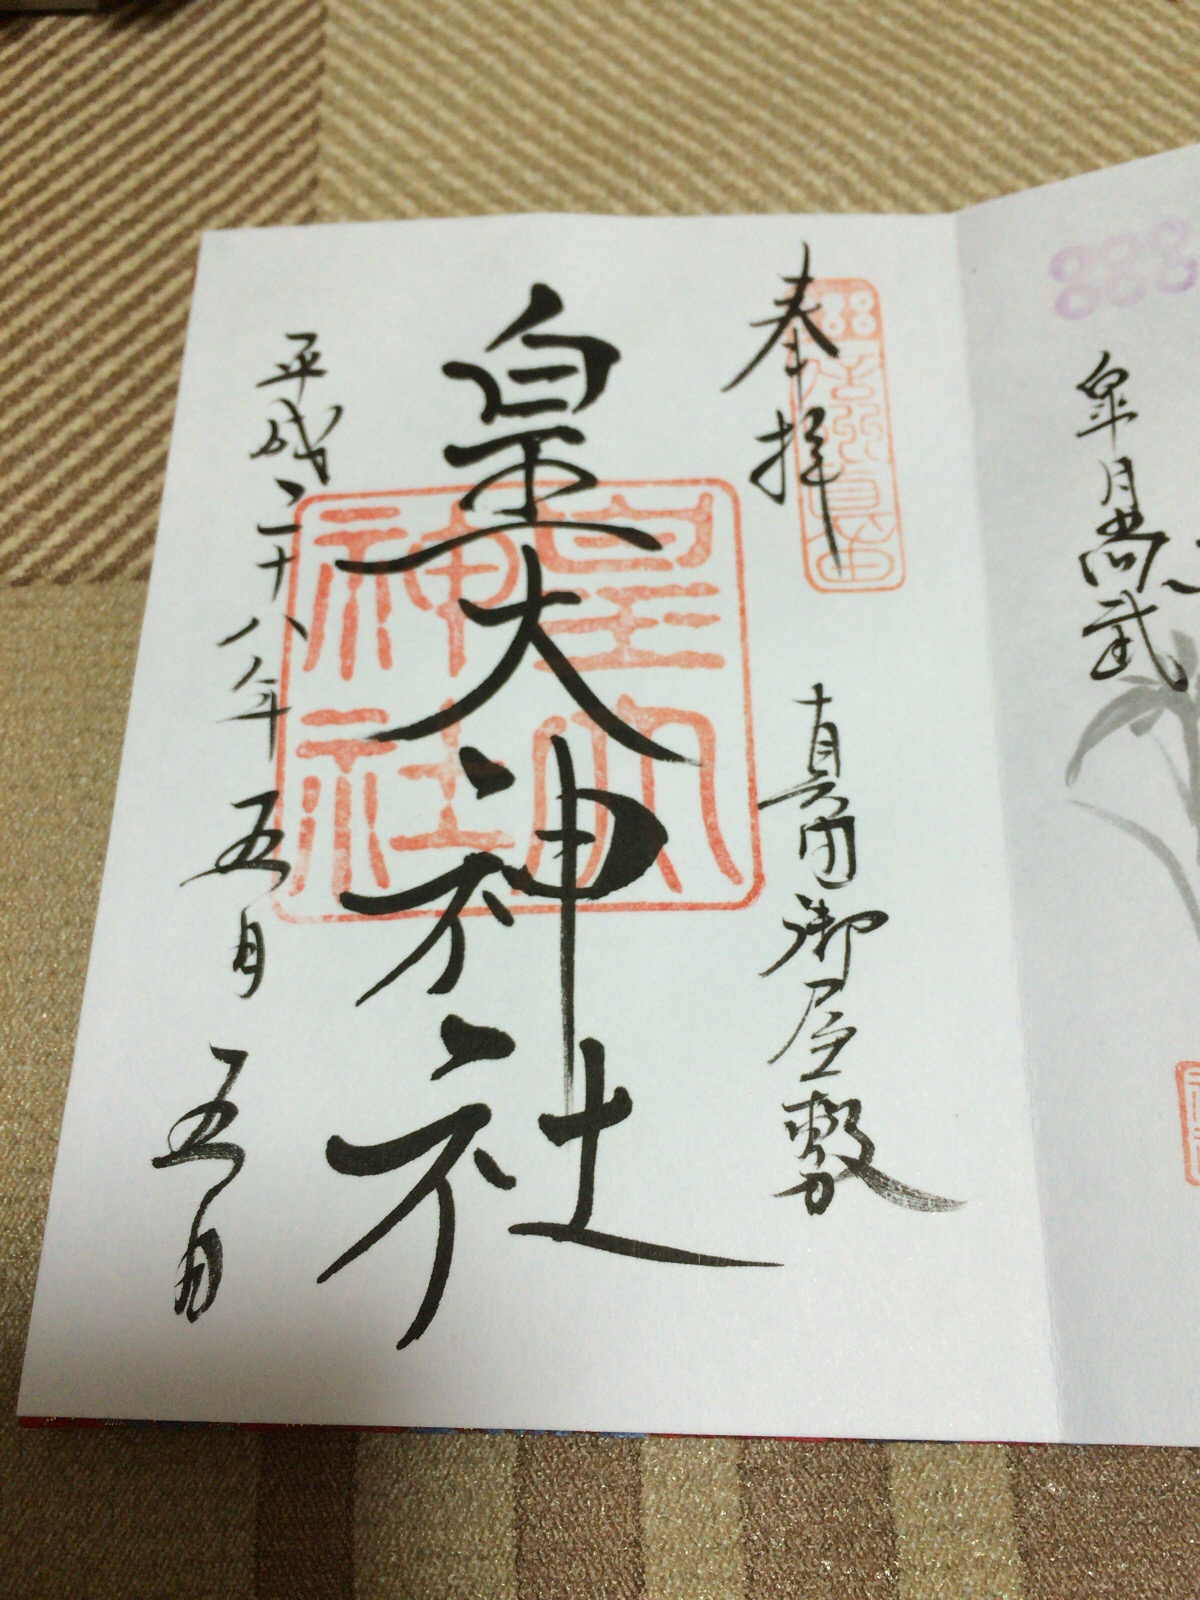 皐月
尚武
奉拝
真田御屋敷
皇大神社
皇大
神社
平成二十八年五月五日